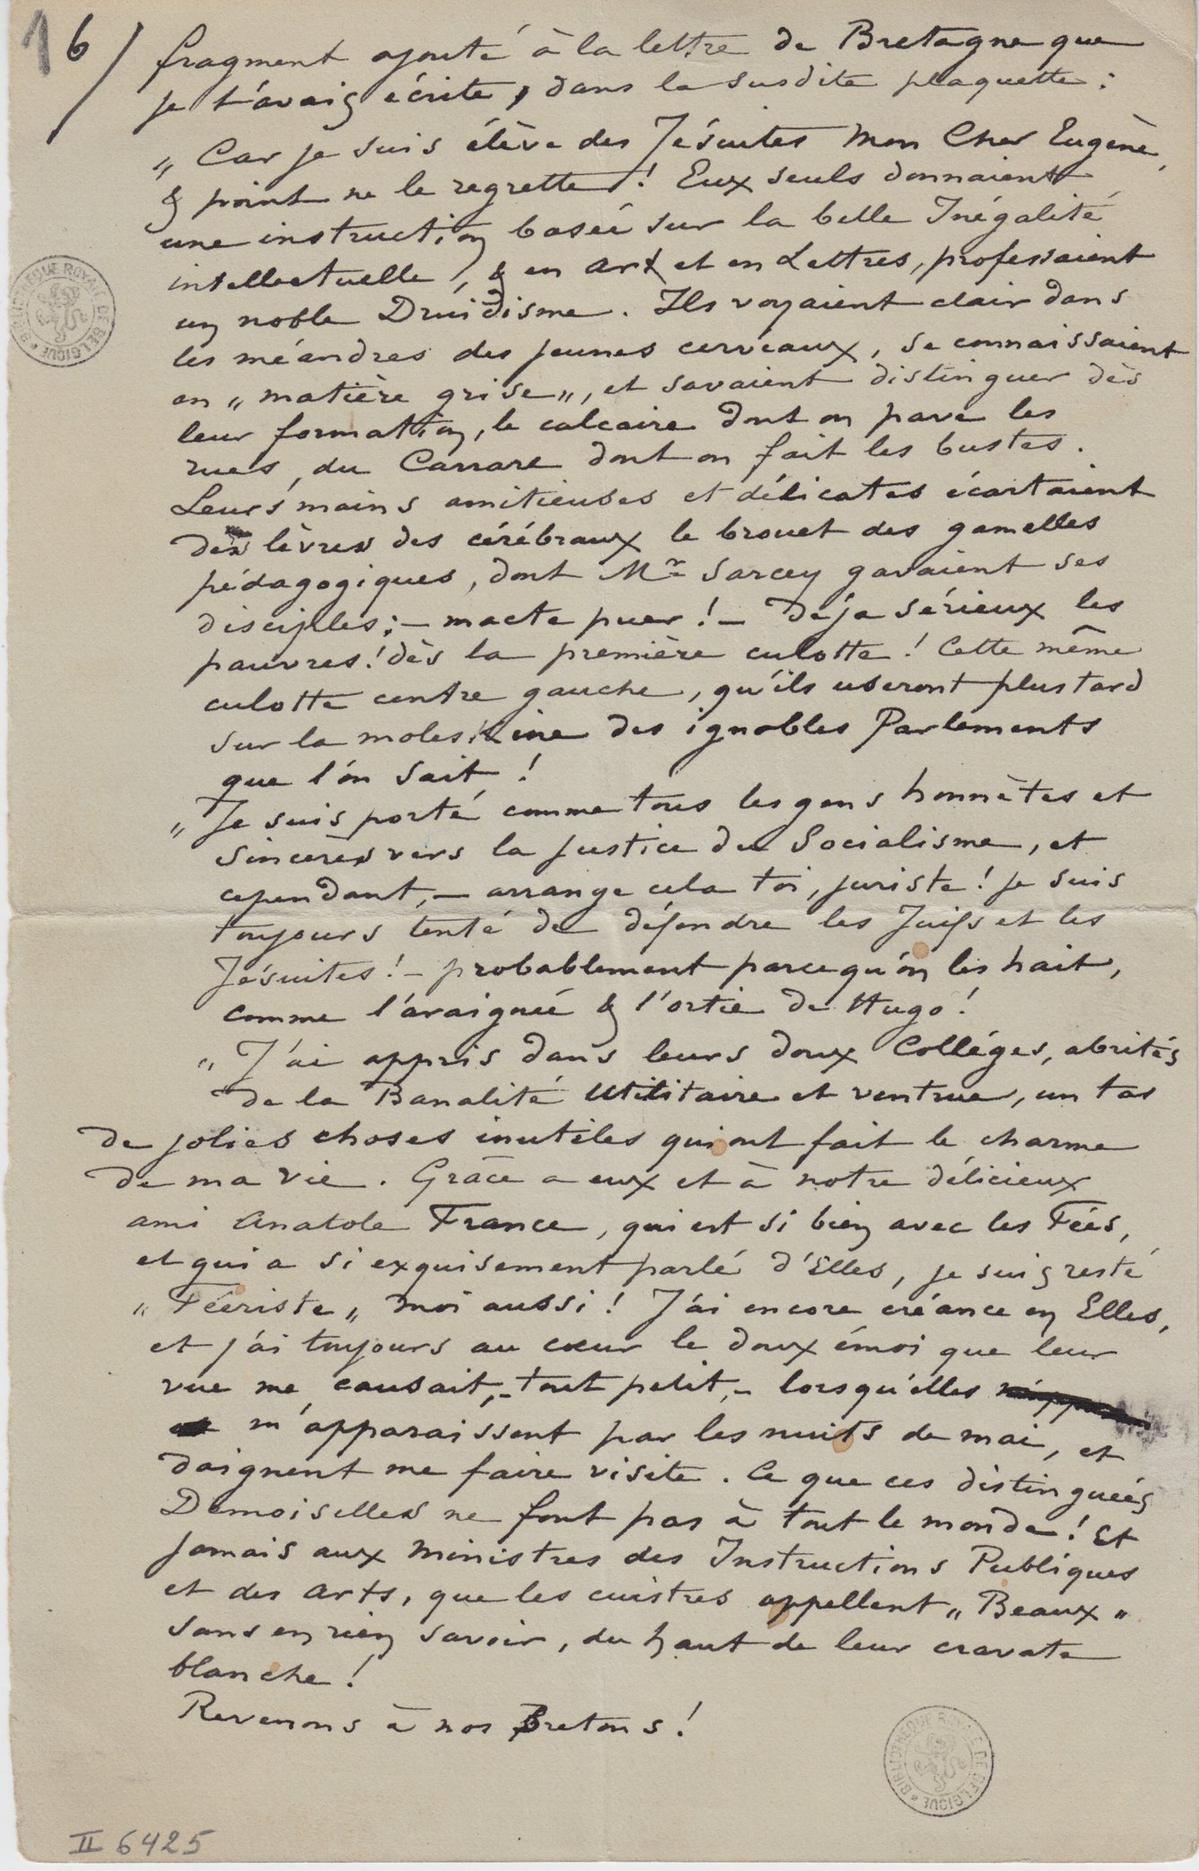 16/
fragment ajouté à la lettre de Bretagne que
je t'avais écrite, dans la susdite plaquette :
„ Car je suis élève des Jésuites Mon Cher Eugène,
& point ne le regrette ! Eux seuls donnaient
une instruction basée sur la belle Inégalité
intellectuelle, & en Art et en Lettres, professaient
un noble Druidisme. Ils voyaient clair dans
les méandres des jeunes cerveaux, se connaissaient
en „ matière grise „, et savaient distinguer dès
leur formation, le calcaire dont on pave les
rues, du Carrare dont on fait les bustes.
Leurs mains amitieuses et délicates écartaient
des lèvres des cérébraux le brouet des gamelles
pédagogiques, dont Mr Sarcey gavaient ses
disciples ; – macte puer ! – Déja sérieux les
pauvres ! dès la première culotte ! Cette même
culotte centre gauche, qu'ils useront plus tard
sur la moleskine des ignobles Parlements
que l'on sait !
„ Je suis porté comme tous les gens honnètes et
sincères vers la justice du Socialisme, et
cependant, – arrange cela toi, juriste ! je suis
toujours tenté de défendre les Juifs et les
Jésuites ! – probablement parcequ'on les hait,
comme l'araignée & l'ortie de Hugo !
„ J'ai appris dans leurs doux Colléges, abrités
de la Banalité utilitaire et ventrue, un tas
de jolies choses inutiles qui ont fait le charme
de ma vie. Grâce a eux et à notre délicieux
ami Anatole France, qui est si bien avec les Fées,
et qui a si exquisement parlé d'Elles, je suis resté
„ Féeriste „ moi aussi ! J'ai encore créance en Elles,
et j'ai toujours au cœur le doux émoi que leur
vue me causait, – tout petit, – lorsqu'elles
m'apparaissent par les nuits de mai, et
daignent me faire visite. Ce que ces distinguées
Demoiselles ne font pas à tout le monde ! Et
jamais aux Ministres des Instructions Publiques
et des Arts, que les cuistres appellent „ Beaux „
sans en rien savoir, du haut de leur cravate
blanche !
Revenons à nos Bretons !
BIBLIOTHEQUE ROYALE DE BELGIQUE
BIBLIOTHEQUE ROYALE DE BELGIQUE
II 6425